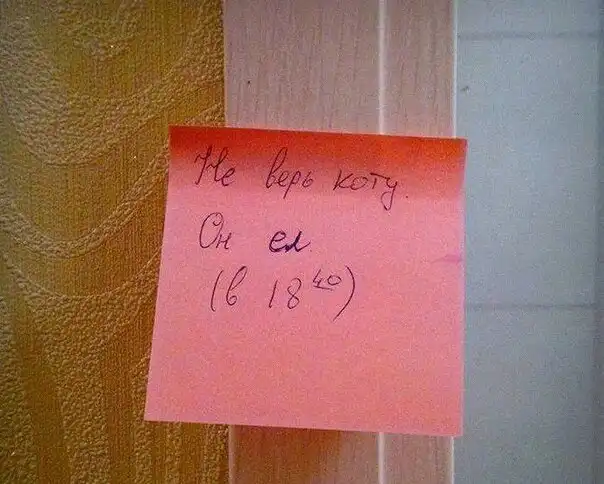 Не верь коту.
Он ел
(в 18 40)